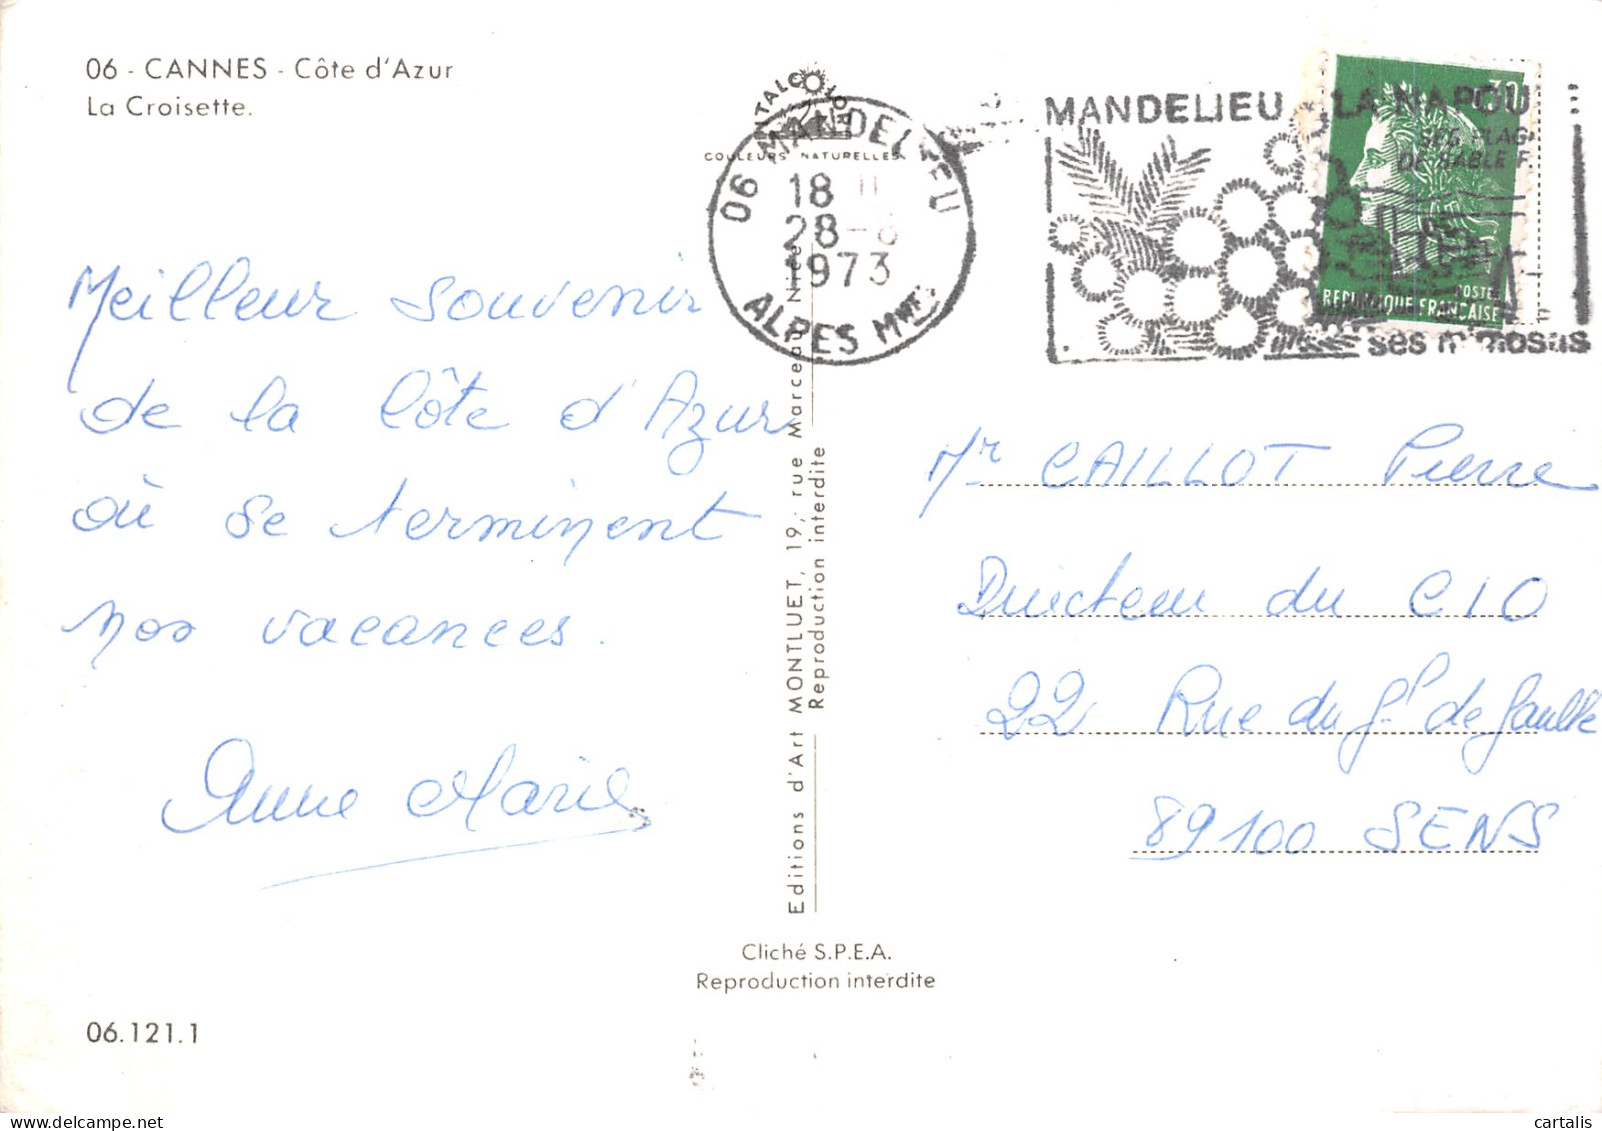 06 - CANNES - Côte d'Azur
La Croisette.
COULEURS NATURELLES
06 MANDELIEU
18
28-8
1973
ALPES Mmes
MANDELIEU LA NAPOU
SES PLAG
DE SABLE F
ses mimosas
POSTES
REPUBLIQUE FRANÇAISE
Meilleur souvenir
de la Côte d'Azur
où se terminent
nos vacances.
Anne Marie
Mr CAILLOT Pierre
Directeur du CIO
22 Rue du Gl de Gaulle
89100 SENS
Editions d'Art MONTLUET, 19, rue Marceau Nice
Reproduction interdite
Cliché S.P.E.A.
Reproduction interdite
06.121.1
delcampe.net
cartalis